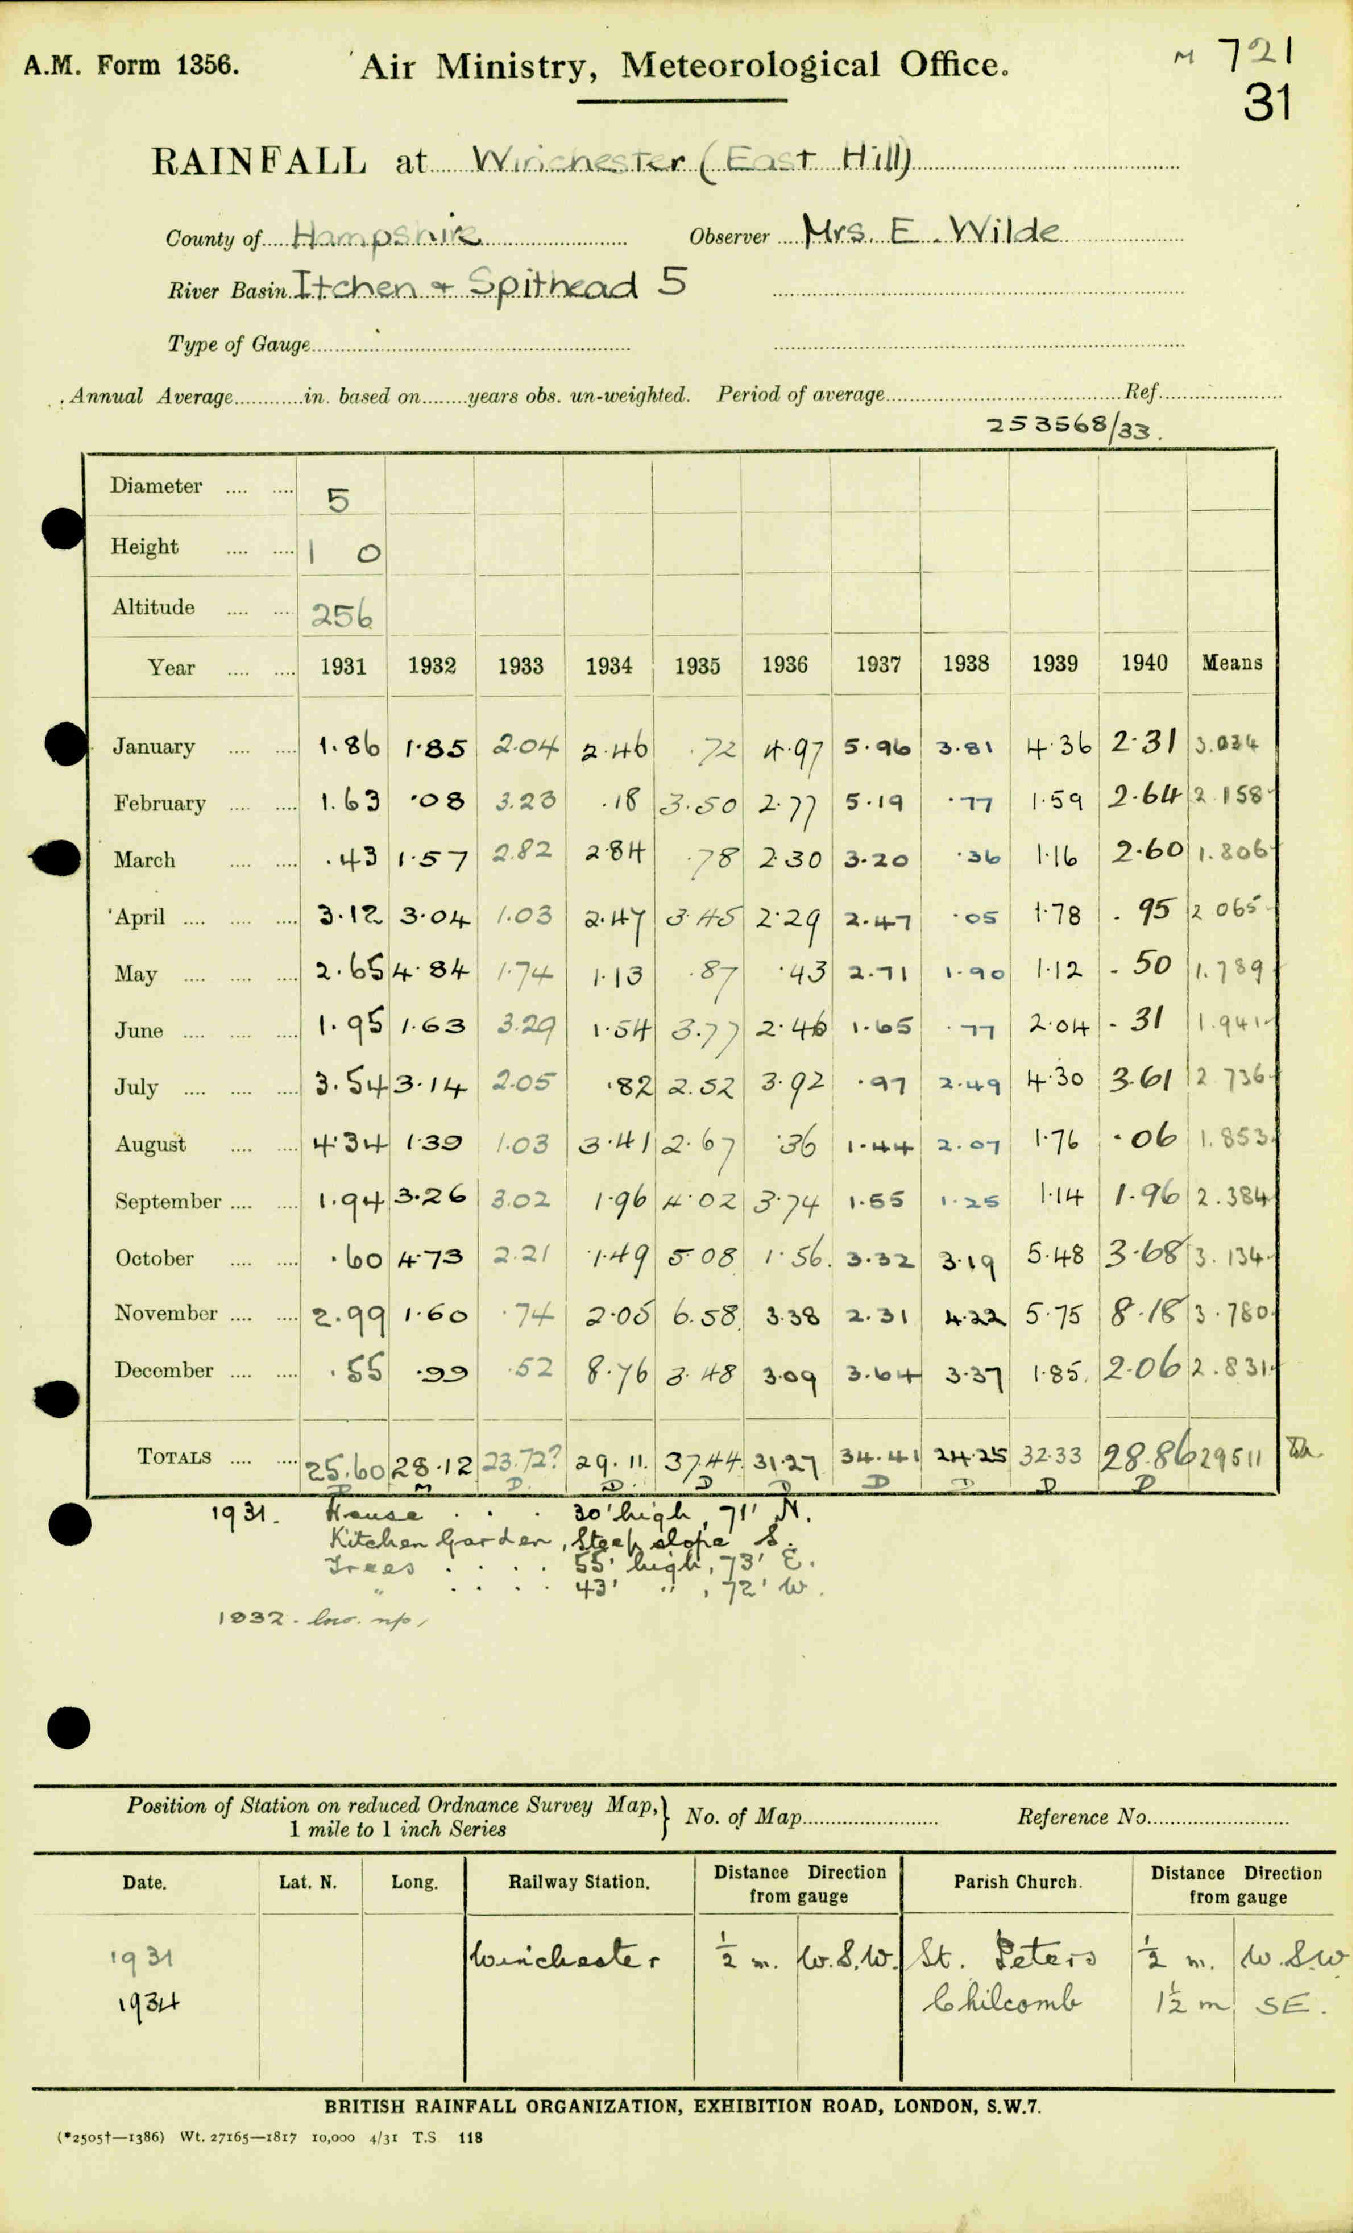 A.M. Form 1356.
Air Ministry, Meteorological Office.
M 721
31
RAINFALL at Winchester (East Hill)
County of Hampshire Observer Mrs. E. Wilde
River Basin Itchen + Spithead 5
Type of Gauge
Annual Average in. based on years obs. un-weighted. Period of average Ref.
253568/33.
Diameter 5
Height 1 0
Altitude 256
Year 1931 1932 1933 1934 1935 1936 1937 1938 1939 1940 Means
January 1.86 1.85 2.04 2.46 .72 4.97 5.96 3.81 4.36 2.31 3.034
February 1.63 .08 3.23 .18 3.50 2.77 5.19 .77 1.59 2.64 2.158
March .43 1.57 2.82 2.84 .78 2.30 3.20 .36 1.16 2.60 1.806
April 3.12 3.04 1.03 2.47 3.45 2.29 2.47 .05 1.78 .95 2.065
May 2.65 4.84 1.74 1.13 .87 .43 2.71 1.90 1.12 .50 1.789
June 1.95 1.63 3.29 1.54 3.77 2.46 1.65 .77 2.04 .31 1.941
July 3.54 3.14 2.05 .82 2.52 3.92 .97 2.49 4.30 3.61 2.736
August 4.34 1.39 1.03 3.41 2.67 .36 1.44 2.07 1.76 .06 1.853
September 1.94 3.26 3.02 1.96 4.02 3.74 1.55 1.25 1.14 1.96 2.384
October .60 4.73 2.21 1.49 5.08 1.56 3.32 3.19 5.48 3.68 3.134
November 2.99 1.60 .74 2.05 6.58 3.38 2.31 4.22 5.75 8.18 3.780
December .55 .99 .52 8.76 3.48 3.09 3.64 3.37 1.85 2.06 2.831
TOTALS 25.60 28.12 23.72? 29.11 37.44 31.27 34.41 24.25 32.33 28.86 29511
D M D D D D D D D D
1931. House . . . 30' high, 71' N.
Kitchen Garden, Steep slope S.
Trees . . . . 55' high, 73' E.
" . . . . 43' " , 72' W.
1932.
Position of Station on reduced Ordnance Survey Map, 1 mile to 1 inch Series } No. of Map Reference No.
Date. Lat. N. Long. Railway Station. Distance Direction from gauge Parish Church. Distance Direction from gauge
1931 Winchester ½ m. W.S.W. St. Peters ½ m. W.S.W
1934 Chilcomb 1½ m SE.
BRITISH RAINFALL ORGANIZATION, EXHIBITION ROAD, LONDON, S.W.7.
(*2505†—1386) Wt. 27165—1817 10,000 4/31 T.S 118